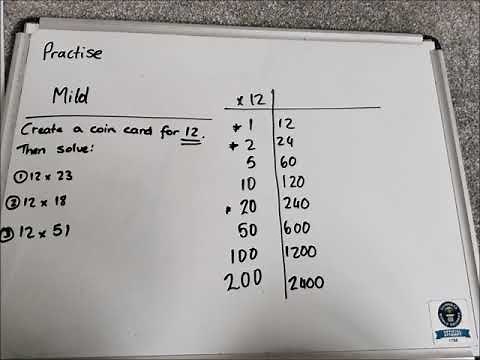 Practise
Mild
Create a coin card for 12.
Then solve:
① 12 x 23
② 12 x 18
③ 12 x 51
x 12
* 1 12
* 2 24
5 60
10 120
* 20 240
50 600
100 1200
200 2400
OFFICIAL
ATTEMPT